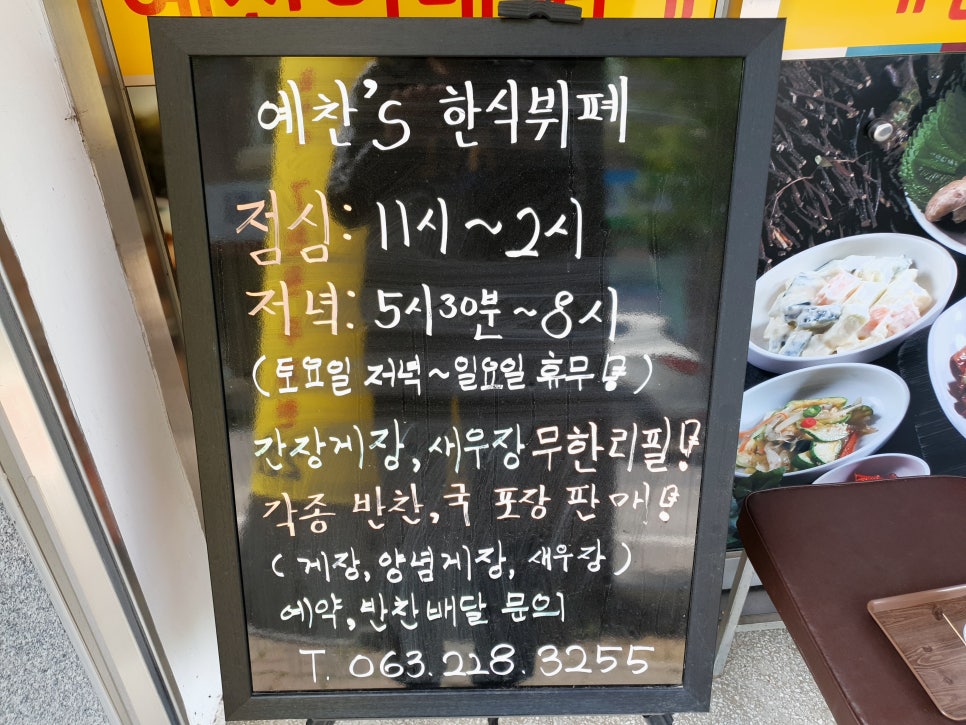 예찬's 한식뷔페
점심: 11시~2시
저녁: 5시30분~8시
(토요일 저녁~일요일 휴무!)
간장게장, 새우장 무한리필!
각종 반찬, 국 포장 판매!
(게장, 양념게장, 새우장)
예약, 반찬배달 문의
T. 063.228.3255